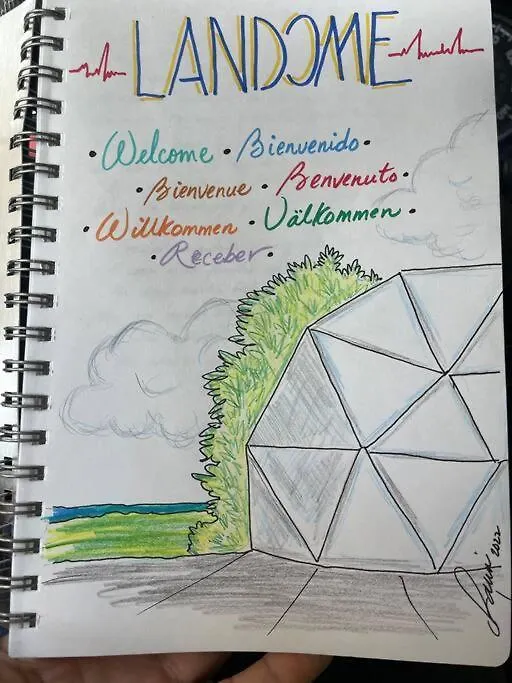 LANDOME
• Welcome • Bienvenido •
• Bienvenue • Benvenuto •
• Willkommen • Välkommen •
• Receber •
2022